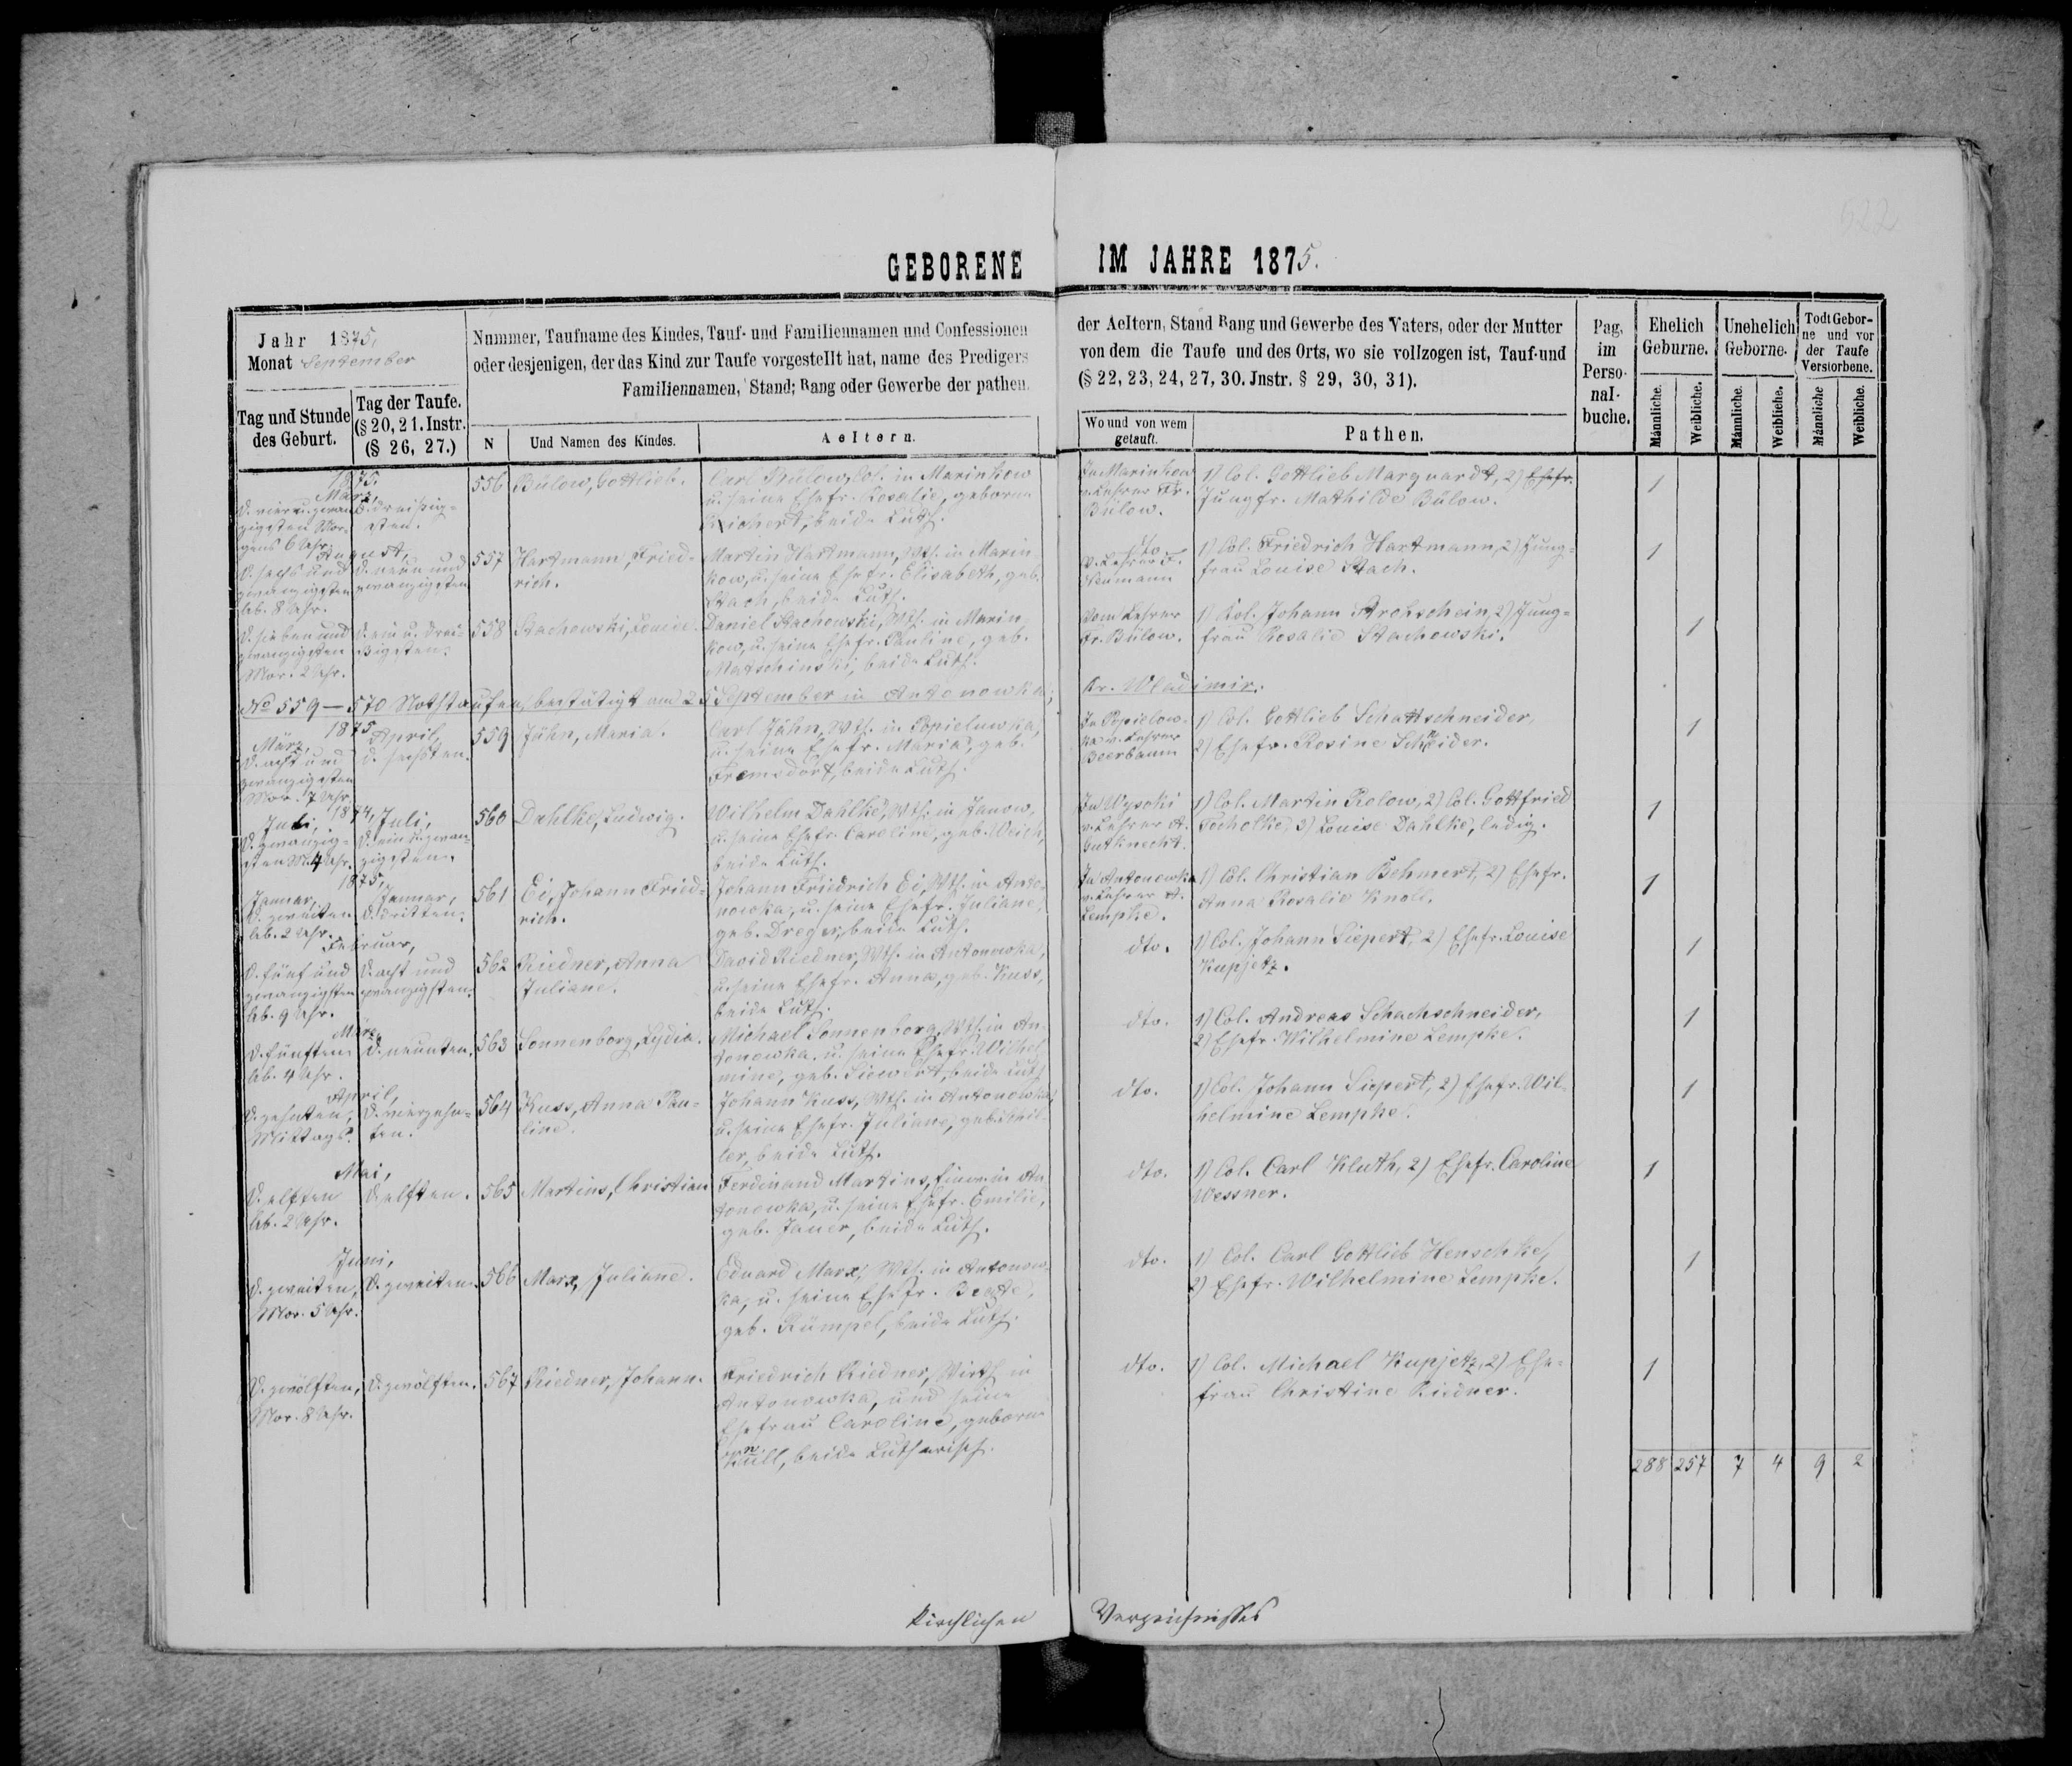 522
GEBORENE IM JAHRE 1875.
Jahr 1875,
Monat September
Tag und Stunde des Geburt.
Tag der Taufe. (§ 20, 21. Instr. (§ 26, 27.)
Nummer, Taufname des Kindes, Tauf- und Familiennamen und Confessionen
oder desjenigen, der das Kind zur Taufe vorgestellt hat, name des Predigers
Familiennamen, Stand; Rang oder Gewerbe der pathen.
N
Und Namen des Kindes.
Aeltern.
der Aeltern, Stand Rang und Gewerbe des Vaters, oder der Mutter
von dem die Taufe und des Orts, wo sie vollzogen ist, Tauf-und
(§ 22, 23, 24, 27, 30. Jnstr. § 29, 30, 31).
Wo und von wem getauft.
Pathen.
Pag. im Perso-nal-buche.
Ehelich Geburne.
Unehelich Geborne.
Todt Gebor-ne und vor der Taufe Verstorbene.
Männliche. Weibliche. Männliche. Weibliche. Männliche Weibliche.
1875.
März,
D. vier u. zwan-
zigsten Mor-
gens 6 Uhr.
D. dreißig-
sten.
556
Bülow, Gottlieb.
Carl Bülow, Col. in Marinkow
u. seine Ehefr. Rosalie, geborne
Reichert, beide Luth.
In Marinkow
v. Lehrer Fr.
Bülow.
1) Col. Gottlieb Marquardt, 2) Ehefr.
Jungfr. Mathilde Bülow.
1
August,
D. sechs und
zwanzigsten
Ab. 8 Uhr.
D. neun und
zwanzigsten
557
Hartmann, Fried-
rich.
Martin Hartmann, Wth. in Marin-
kow, u. seine Ehefr. Elisabeth, geb.
Stach, beide Luth.
dto.
v. Lehrer F.
Neumann
1) Col. Friedrich Hartmann, 2) Jung-
frau Louise Stach.
1
D. sieben und
zwanzigsten
Mor. 2 Uhr.
D. ein u. drei-
ßigsten.
558
Stachowski, Louise.
Daniel Stachowski, Wth. in Marin-
kow, u. seine Ehefr. Pauline, geb.
Matschinski, beide Luth.
Vom Lehrer
Fr. Bülow.
1) Col. Johann Strohschein, 2) Jung-
frau Rosalie Stachowski.
1
No 559 — 570 Nothtaufen, bestätigt am 25 September in Antonowka; Kr. Wladimir.
1875
März,
D. acht und
zwanzigsten
Mor. 7 Uhr
April,
D. sechsten.
559
Jähn, Maria.
Carl Jähn, Wth. in Popielowka,
u. seine Ehefr. Maria, geb.
Fremsdorf, beide Luth.
In Popielow-
ka v. Lehrer
Beerbaum
1) Col. Gottlieb Schattschneider,
2) Ehefr. Rosine Schneider.
1
1874,
Juli,
D. zwanzig-
sten M. 4 Uhr.
Juli,
D. ein u. zwan-
zigsten.
560
Dahlke, Ludwig.
Wilhelm Dahlke, Wth. in Janow,
u. seine Ehefr. Caroline, geb. Weich,
beide Luth.
In Wysoki
v. Lehrer A.
Gutknecht.
1) Col. Martin Rolow, 2) Col. Gottfried
Tocholke, 3) Louise Dahlke, ledig.
1
1875,
Januar,
D. zweiten
Ab. 2 Uhr.
Januar,
D. dritten.
561
Ei, Johann Fried-
rich.
Johann Friedrich Ei, Wth. in Anto-
nowka, u. seine Ehefr. Juliane,
geb. Dreger, beide Luth.
In Antonowka
v. Lehrer A.
Lempke.
1) Col. Christian Behmert, 2) Ehefr.
Anna Rosalie Knoll.
1
Februar,
D. fünf und
zwanzigsten
Ab. 9 Uhr.
D. acht und
zwanzigsten.
562
Riedner, Anna
Juliane.
David Riedner, Wth. in Antonowka,
u. seine Ehefr. Anna, geb. Kuss,
beide Luth.
dto.
1) Col. Johann Siepert, 2) Ehefr. Louise
Kupjetz.
1
März,
D. fünften
Ab. 4 Uhr.
D. neunten.
563
Sonnenborg, Lydia.
Michael Sonnenborg, Wth. in An-
tonowka, u. seine Ehefr. Wilhel-
mine, geb. Siewert, beide Luth
dto.
1) Col. Andreas Schachschneider,
2) Ehefr. Wilhelmine Lempke.
1
April,
D. zehnten,
Mittags.
D. vierzehn-
ten.
564
Kuss, Anna Pau-
line.
Johann Kuss, Wth. in Antonowka,
u. seine Ehefr. Juliane, geb.
ler, beide Luth.
dto.
1) Col. Johann Siepert, 2) Ehefr. Wil-
helmine Lempke.
1
Mai,
D. elften
Ab. 2 Uhr.
D. elften.
565
Martins, Christian
Ferdinand Martins, in An-
tonowka, u. seine Ehefr. Emilie,
geb. Janer, beide Luth.
dto.
1) Col. Carl Kluth, 2) Ehefr. Caroline
Wessner.
1
Juni,
D. zweiten,
Mor. 5 Uhr.
D. zweiten.
566
Marx, Juliane.
Eduard Marx, Wth. in Antonow-
ka, u. seine Ehefr. Beate,
geb. Rümpel, beide Luth.
dto.
1) Col. Carl Gottlieb Henschke,
2) Ehefr. Wilhelmine Lempke.
1
D. zwölften,
Mor. 8 Uhr.
D. zwölften.
567
Riedner, Johann.
Friedrich Riedner, Wirth in
Antonowka, und seine
Ehefrau Caroline, geborne
Knull, beide Lutherisch.
dto.
1) Col. Michael Kupjetz, 2) Ehe-
frau Christine Riedner.
1
288 257 7 4 9 2
Kirchlichen Verzeichnisses